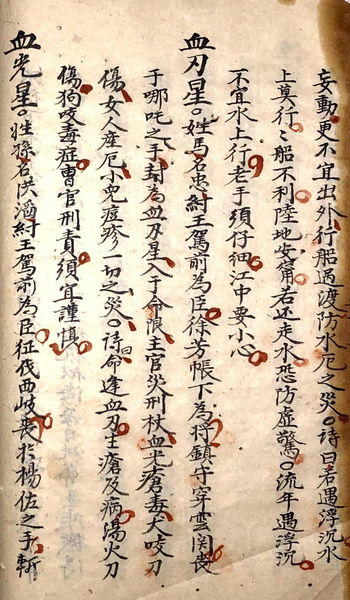 妄動更不宜出外行船過渡防水厄之災。诗曰若遇浮沉水
上莫行〻船不利陸地安痊若还走水恐防虚驚。流年遇浮沉
不宜水上行老手須仔细江中要小心
血刃星。姓馬名忠紂王駕前為臣徐芳帳下為将鎮守穿雲関丧
于哪吒之手封為血刃星入于命限主官災刑杖血光瘡毒犬咬刀
傷女人産厄小児痘疹一切之災。诗曰命逢血刃主瘡及病湯火刀
傷狗咬毒症曹官刑責須宜謹慎
血光星。姓孫名洪酒紂王駕前為臣征伐西岐丧扵楊佐之手斬